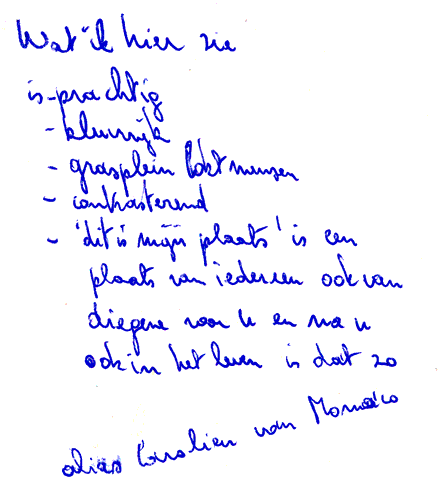 Wat ik hier zie
is - prachtig
- kleurrijk
- grasplein lokt mensen
- contrasterend
- 'dit is mijn plaats' is een
plaats van iedereen ook van
diegene voor u en na u
ook in het leven is dat zo
alias Carolien van Monaco